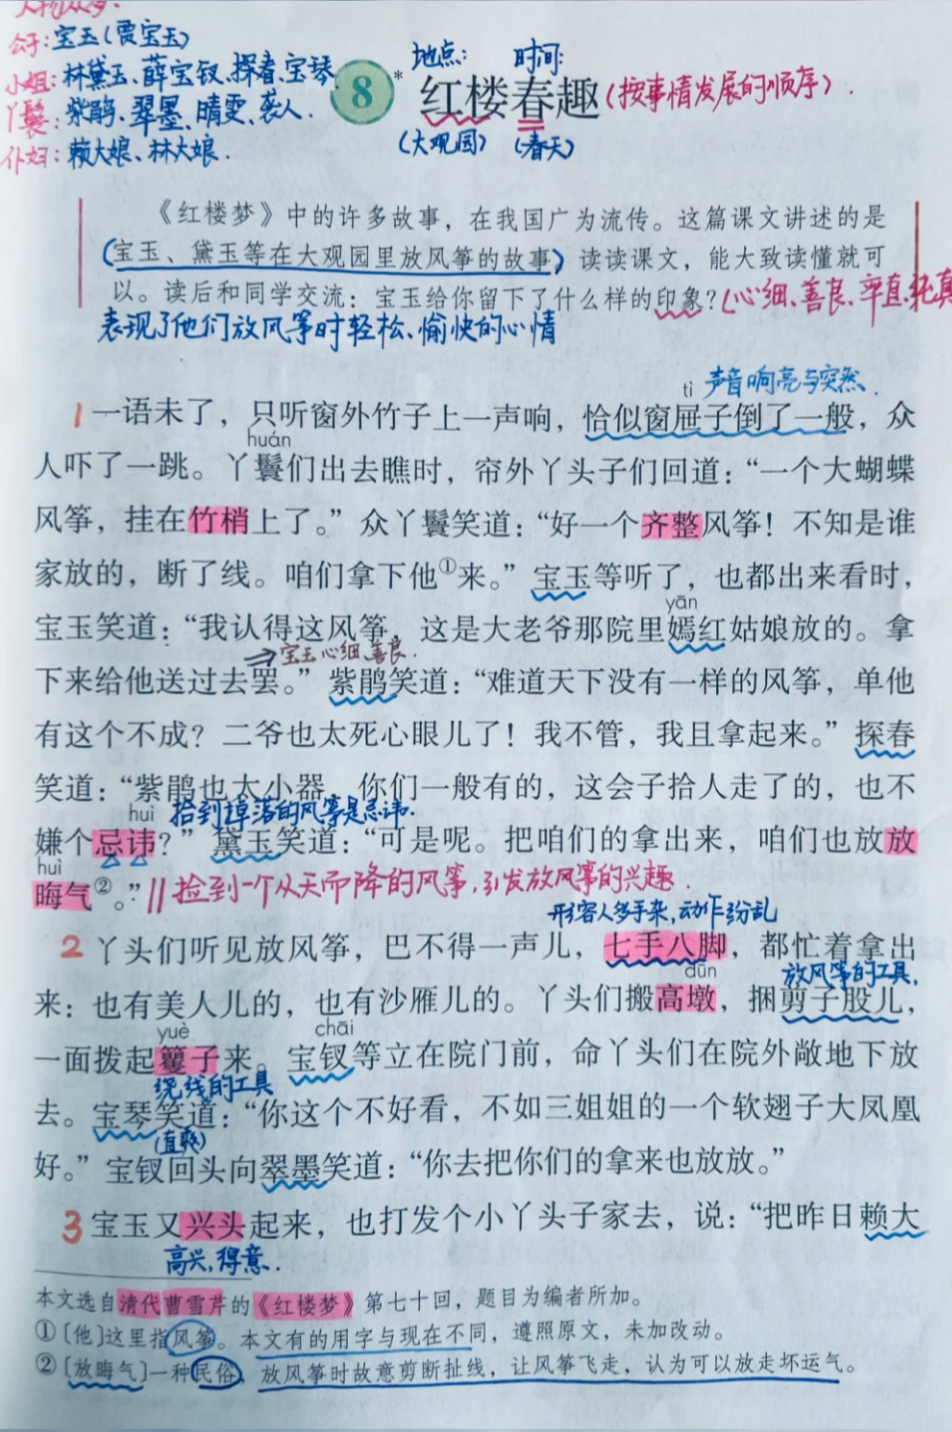 人物众多.
公子:宝玉(贾宝玉)
小姐:林黛玉、薛宝钗、探春、宝琴.
丫鬟:紫鹃、翠墨、晴雯、袭人.
仆妇:赖大娘、林大娘.
地点: 时间:
8* 红楼春趣(按事情发展的顺序).
(大观园) (春天)
《红楼梦》中的许多故事，在我国广为流传。这篇课文讲述的是
(宝玉、黛玉等在大观园里放风筝的故事)，读读课文，能大致读懂就可
以。读后和同学交流：宝玉给你留下了什么样的印象？(心细、善良、率直、纯真
表现了他们放风筝时轻松、愉快的心情
tì 声音响亮与突然.
1 一语未了，只听窗外竹子上一声响，恰似窗屉子倒了一般，众
huán
人吓了一跳。丫鬟们出去瞧时，帘外丫头子们回道：“一个大蝴蝶
风筝，挂在竹梢上了。”众丫鬟笑道：“好一个齐整风筝！不知是谁
家放的，断了线。咱们拿下他①来。”宝玉等听了，也都出来看时，
yān
宝玉笑道：“我认得这风筝，这是大老爷那院里嫣红姑娘放的。拿
宝玉心细、善良.
下来给他送过去罢。”紫鹃笑道：“难道天下没有一样的风筝，单他
有这个不成？二爷也太死心眼儿了！我不管，我且拿起来。”探春
笑道：“紫鹃也太小器，你们一般有的，这会子拾人走了的，也不
huì 拾到掉落的风筝是忌讳.
嫌个忌讳？”黛玉笑道：“可是呢。把咱们的拿出来，咱们也放放
huì
晦气②。” // 捡到一个从天而降的风筝,引发放风筝的兴趣.
形容人多手杂,动作纷乱
2 丫头们听见放风筝，巴不得一声儿，七手八脚，都忙着拿出
dūn 放风筝的工具,
来：也有美人儿的，也有沙雁儿的。丫头们搬高墩，捆剪子股儿，
yuè chāi
一面拨起籰子来。宝钗等立在院门前，命丫头们在院外敞地下放
绕线的工具
去。宝琴笑道：“你这个不好看，不如三姐姐的一个软翅子大凤凰
(直爽)
好。”宝钗回头向翠墨笑道：“你去把你们的拿来也放放。”
3 宝玉又兴头起来，也打发个小丫头子家去，说：“把昨日赖大
高兴,得意.
本文选自清代曹雪芹的《红楼梦》第七十回，题目为编者所加。
①〔他〕这里指风筝。本文有的用字与现在不同，遵照原文，未加改动。
②〔放晦气〕一种民俗，放风筝时故意剪断扯线，让风筝飞走，认为可以放走坏运气。